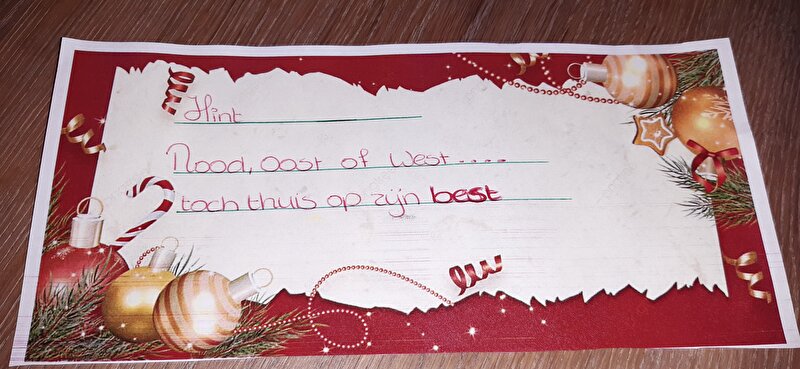 Hint
Nood, Oost of West....
toch thuis op zijn best